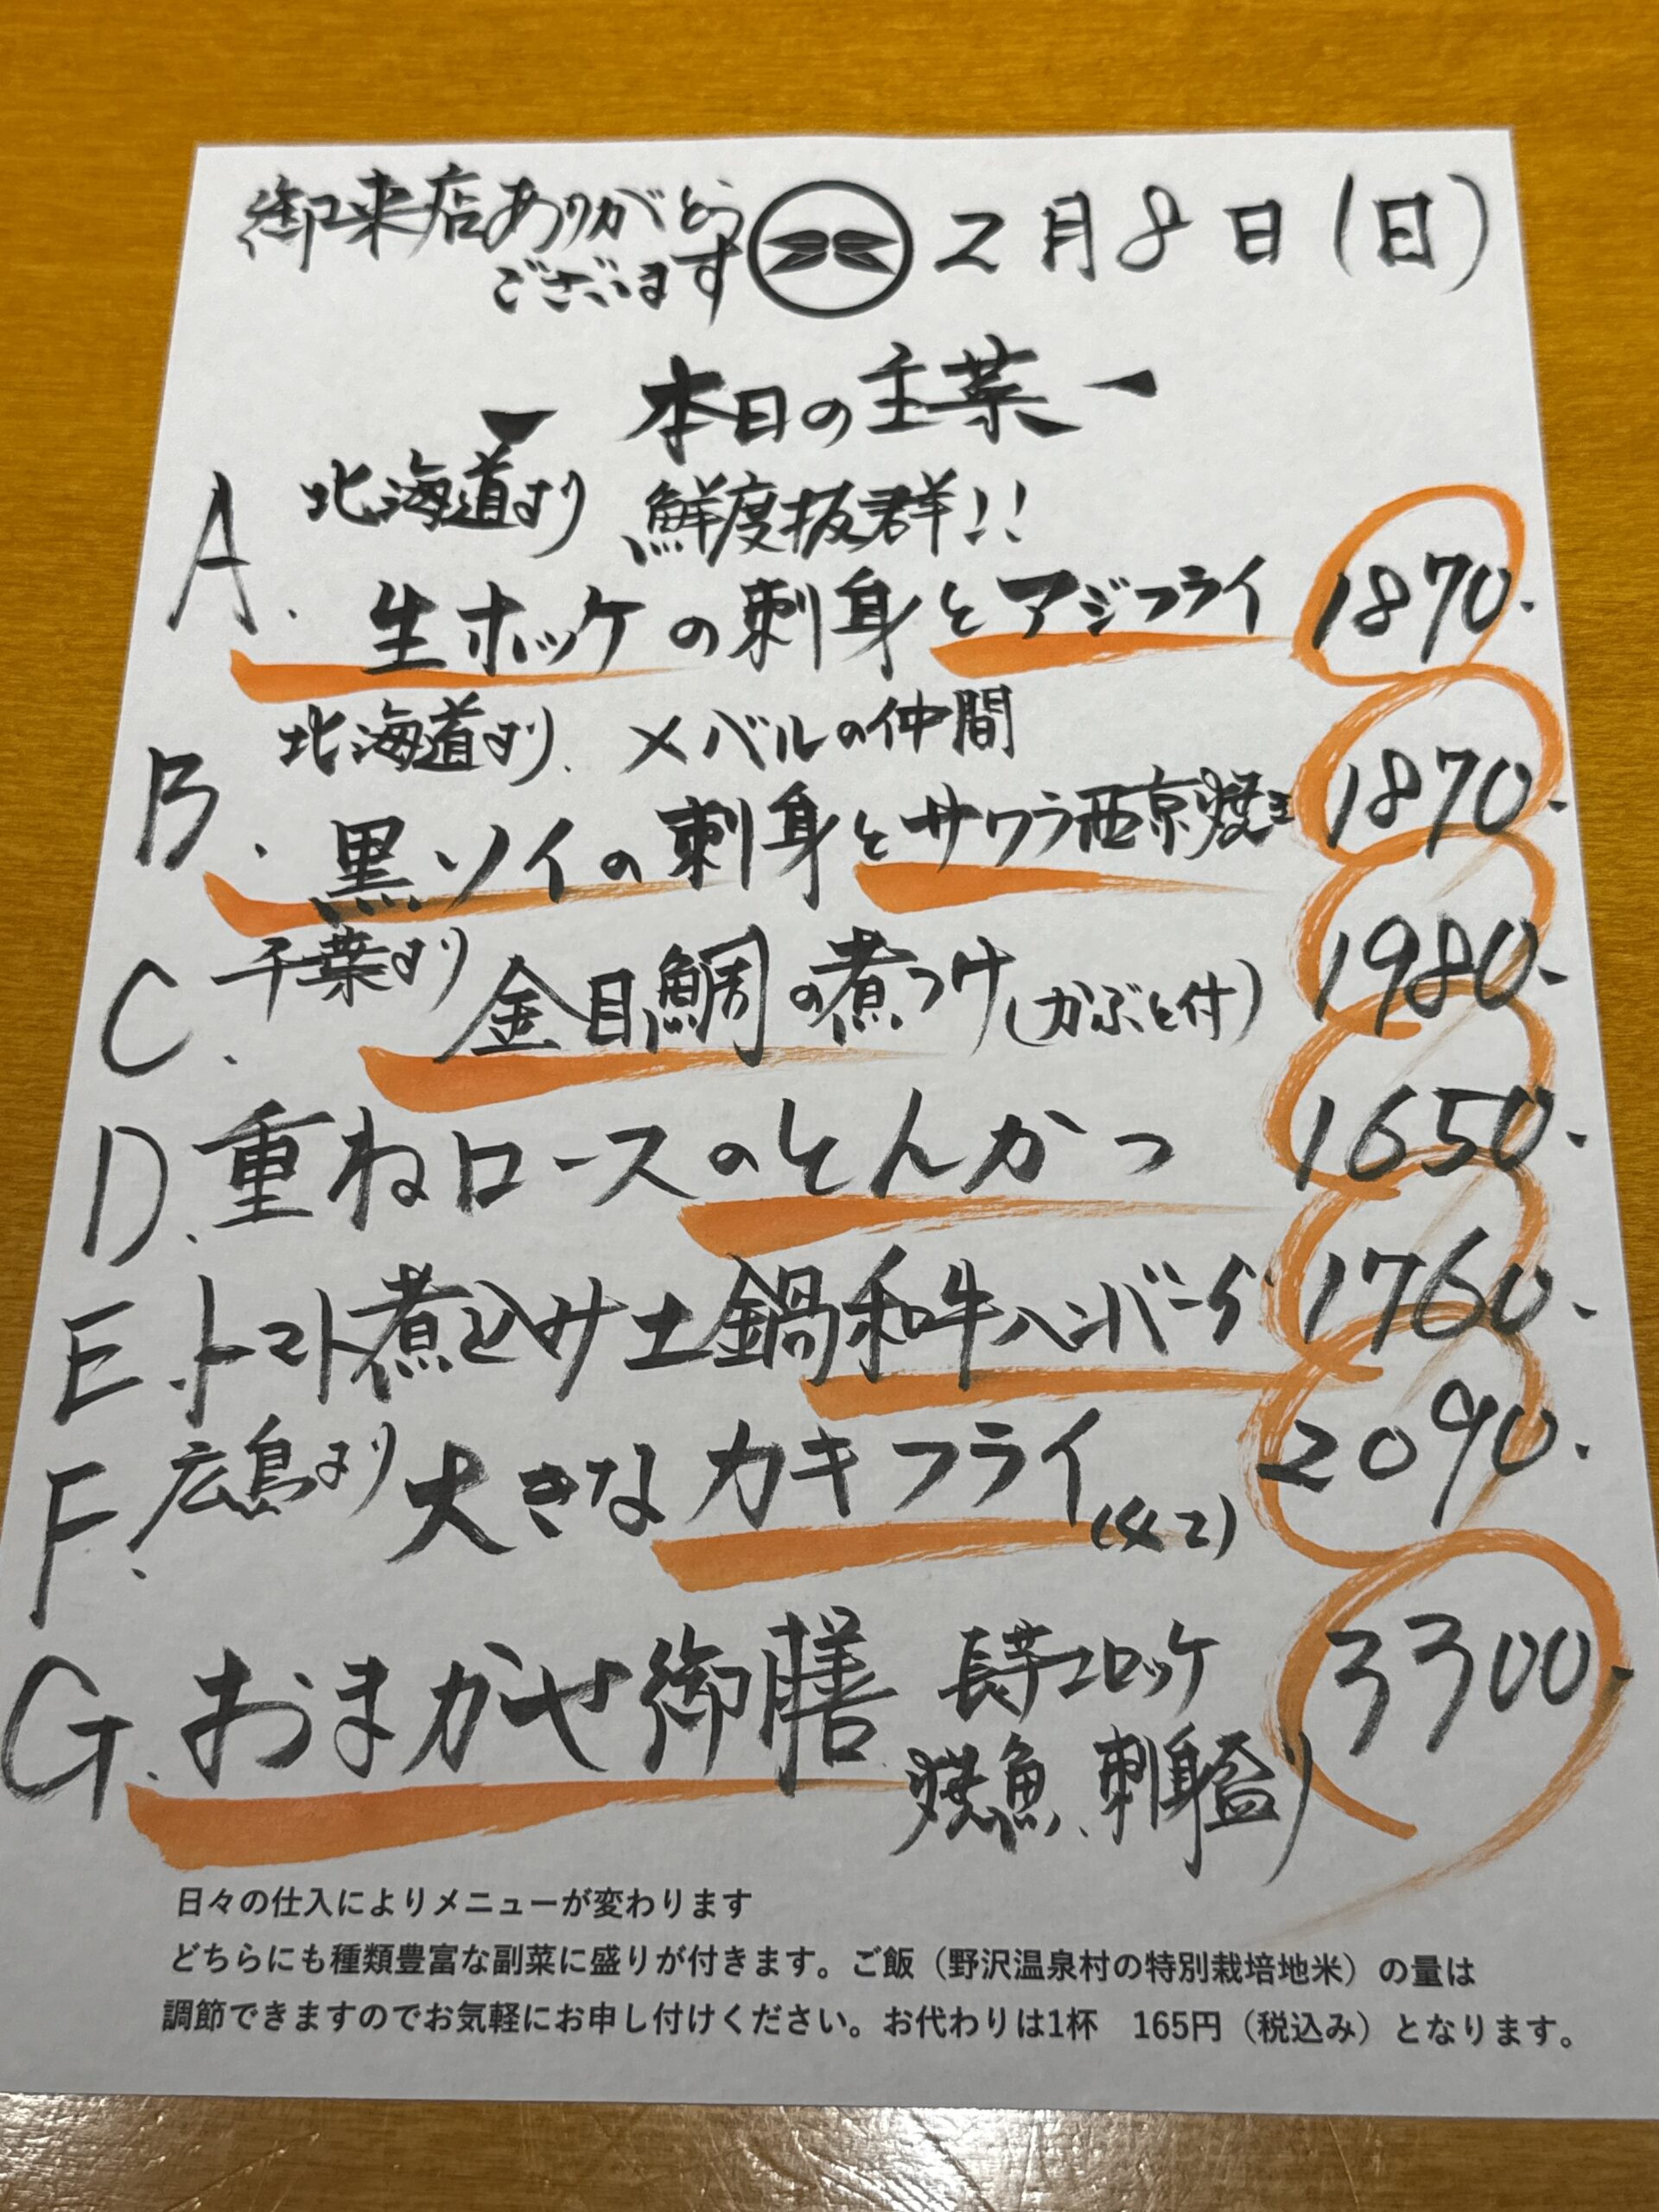 御来店ありがとう
ございます
2月8日(日)
ー本日の主菜ー
A. 北海道より 鮮度抜群!!
生ホッケの刺身とアジフライ 1870.-
B. 北海道より. メバルの仲間
黒ソイの刺身とサワラ西京焼き 1870.-
C. 千葉より 金目鯛の煮つけ(かぶと付) 1980.-
D. 重ねロースのとんかつ 1650.-
E. トマト煮込み土鍋和牛ハンバーグ 1760.-
F. 広島より 大きなカキフライ(4コ) 2090.
G. おまかせ御膳 長芋コロッケ 3300.-
焼魚、刺身盛り
日々の仕入によりメニューが変わります
どちらにも種類豊富な副菜に盛りが付きます。ご飯（野沢温泉村の特別栽培地米）の量は
調節できますのでお気軽にお申し付けください。お代わりは1杯　165円（税込み）となります。